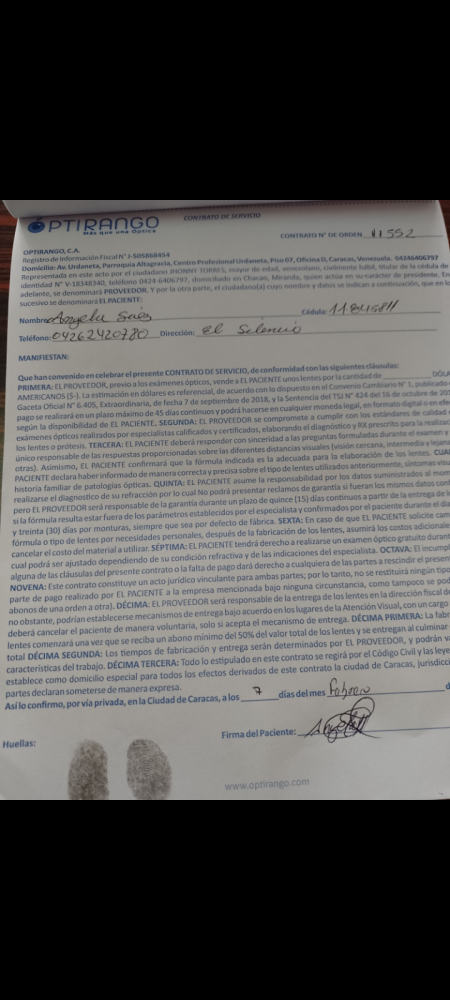 ÓPTIRANGO
Más que una Óptica
CONTRATO DE SERVICIO
CONTRATO N° DE ORDEN 11552
OPTIRANGO, C.A.
Registro de Información Fiscal N° J-505868454
Domicilio: Av. Urdaneta, Parroquia Altagracia, Centro Profesional Urdaneta, Piso 07, Oficina D, Caracas, Venezuela. 04246406797
Representada en este acto por el ciudadano JHONNY TORRES, mayor de edad, venezolano, civilmente hábil, titular de la cédula de
identidad N° V-18348340, teléfono 0424-6406797, domiciliado en Chacao, Miranda, quien actúa en su carácter de presidente. En
adelante, se denominará PROVEEDOR. Y por la otra parte, el ciudadano(a) cuyo nombre y datos se indican a continuación, que en lo
sucesivo se denominará EL PACIENTE:
Nombre: Angela Cédula: 11845811
Teléfono: 04262420780 Dirección: el Silencio
MANIFIESTAN:
Que han convenido en celebrar el presente CONTRATO DE SERVICIO, de conformidad con las siguientes cláusulas:
PRIMERA: EL PROVEEDOR, previo a los exámenes ópticos, vende a EL PACIENTE unos lentes por la cantidad de DÓLA
AMERICANOS ($-). La estimación en dólares es referencial, de acuerdo con lo dispuesto en el Convenio Cambiario N° 1, publicado
Gaceta Oficial N° 6.405, Extraordinaria, de fecha 7 de septiembre de 2018, y la Sentencia del TSJ N° 424 del 16 de octubre de 201
pago se realizará en un plazo máximo de 45 días continuos y podrá hacerse en cualquier moneda legal, en formato digital o en efe
según la disponibilidad de EL PACIENTE, SEGUNDA: EL PROVEEDOR se compromete a cumplir con los estándares de calidad
exámenes ópticos realizados por especialistas calificados y certificados, elaborando el diagnóstico y RX prescrito para la realizac
los lentes o prótesis. TERCERA: EL PACIENTE deberá responder con sinceridad a las preguntas formuladas durante el examen y
único responsable de las respuestas proporcionadas sobre las diferentes distancias visuales (visión cercana, intermedia y lejana
otras). Asimismo, EL PACIENTE confirmará que la fórmula indicada es la adecuada para la elaboración de los lentes. CUA
PACIENTE declara haber informado de manera correcta y precisa sobre el tipo de lentes utilizados anteriormente, síntomas visua
historia familiar de patologías ópticas. QUINTA: EL PACIENTE asume la responsabilidad por los datos suministrados al mom
realizarse el diagnostico de su refracción por lo cual No podrá presentar reclamos de garantía si fueran los mismos datos conf
pero EL PROVEEDOR será responsable de la garantía durante un plazo de quince (15) días continuos a partir de la entrega de l
si la fórmula resulta estar fuera de los parámetros establecidos por el especialista y confirmados por el paciente durante el dia
y treinta (30) días por monturas, siempre que sea por defecto de fábrica. SEXTA: En caso de que EL PACIENTE solicite cam
fórmula o tipo de lentes por necesidades personales, después de la fabricación de los lentes, asumirá los costos adicionale
cancelar el costo del material a utilizar. SÉPTIMA: EL PACIENTE tendrá derecho a realizarse un examen óptico gratuito duran
cual podrá ser ajustado dependiendo de su condición refractiva y de las indicaciones del especialista. OCTAVA: El incump
alguna de las cláusulas del presente contrato o la falta de pago dará derecho a cualquiera de las partes a rescindir el presen
NOVENA: Este contrato constituye un acto jurídico vinculante para ambas partes; por lo tanto, no se restituirá ningún tipo
parte de pago realizado por EL PACIENTE a la empresa mencionada bajo ninguna circunstancia, como tampoco se pod
abonos de una orden a otra). DÉCIMA: EL PROVEEDOR será responsable de la entrega de los lentes en la dirección fiscal d
no obstante, podrían establecerse mecanismos de entrega bajo acuerdo en los lugares de la Atención Visual, con un cargo
deberá cancelar el paciente de manera voluntaria, solo si acepta el mecanismo de entrega. DÉCIMA PRIMERA: La fabr
lentes comenzará una vez que se reciba un abono mínimo del 50% del valor total de los lentes y se entregan al culminar
total DÉCIMA SEGUNDA: Los tiempos de fabricación y entrega serán determinados por EL PROVEEDOR, y podrán va
características del trabajo. DÉCIMA TERCERA: Todo lo estipulado en este contrato se regirá por el Código Civil y las leye
establece como domicilio especial para todos los efectos derivados de este contrato la ciudad de Caracas, jurisdicc
partes declaran someterse de manera expresa.
Así lo confirmo, por vía privada, en la Ciudad de Caracas, a los 7 días del mes febrero d
Firma del Paciente:
Huellas:
www.optirango.com